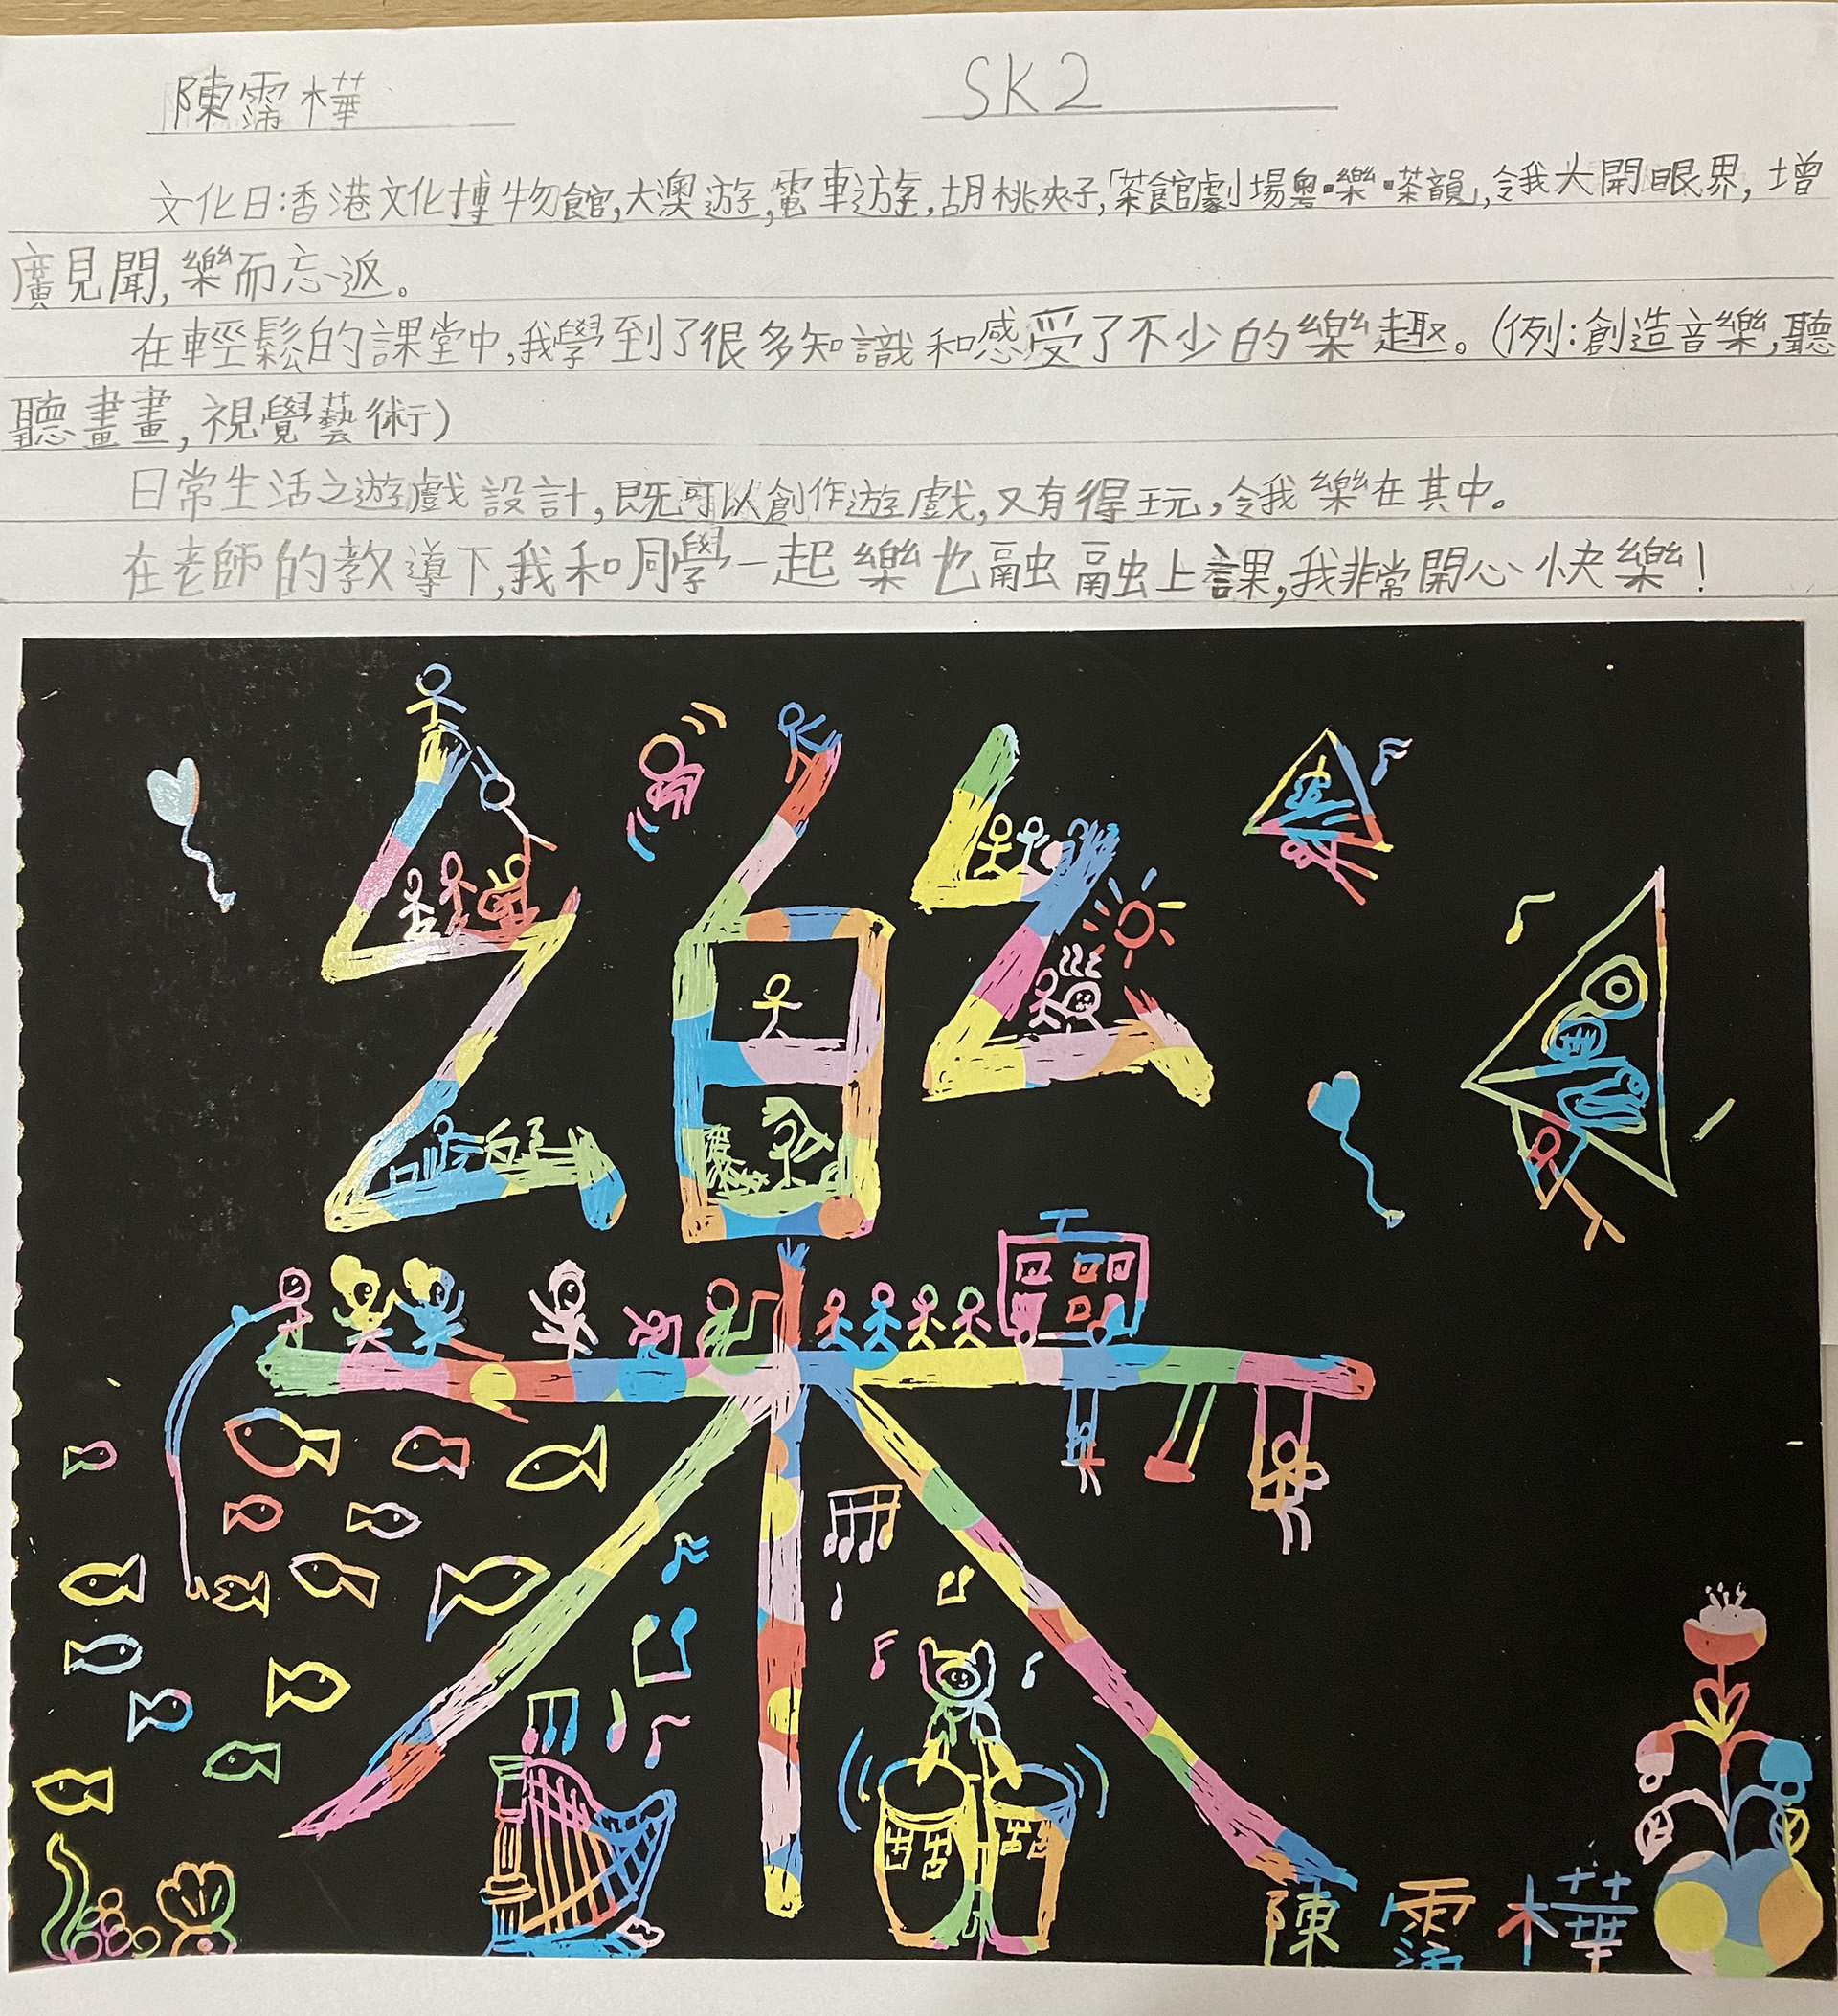 陳霈樺 SK2
文化日:香港文化博物館,大澳遊,電車遊,胡桃夾子,「茶館劇場粵·樂·茶韻」,令我大開眼界,增
廣見聞,樂而忘返。
在輕鬆的課堂中,我學到了很多知識和感受了不少的樂趣。(例:創造音樂,聽
聽畫畫,視覺藝術)
日常生活之遊戲設計,既可以創作遊戲,又有得玩,令我樂在其中。
在老師的教導下,我和同學一起樂也融融上課,我非常開心快樂!
樂
陳霈樺